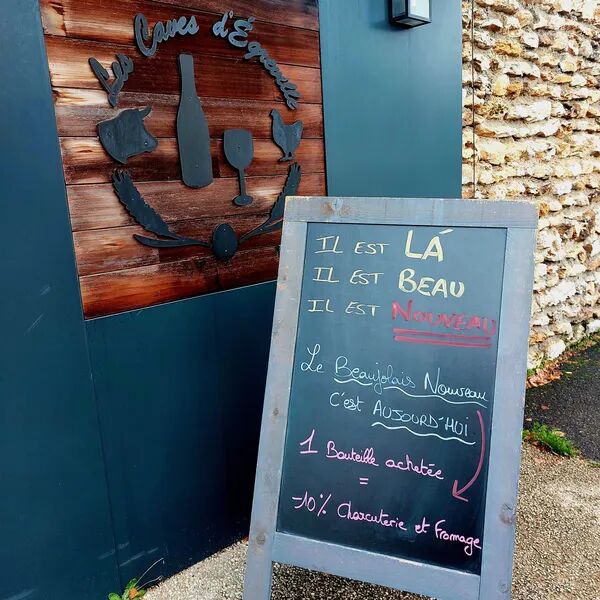 Les Caves d'Eguzeuille
IL EST LÁ
IL EST BEAU
IL EST NOUVEAU
Le Beaujolais Nouveau
C'est AUJOURD'HUI
1 Bouteille achetée
=
-10% Charcuterie et Fromage